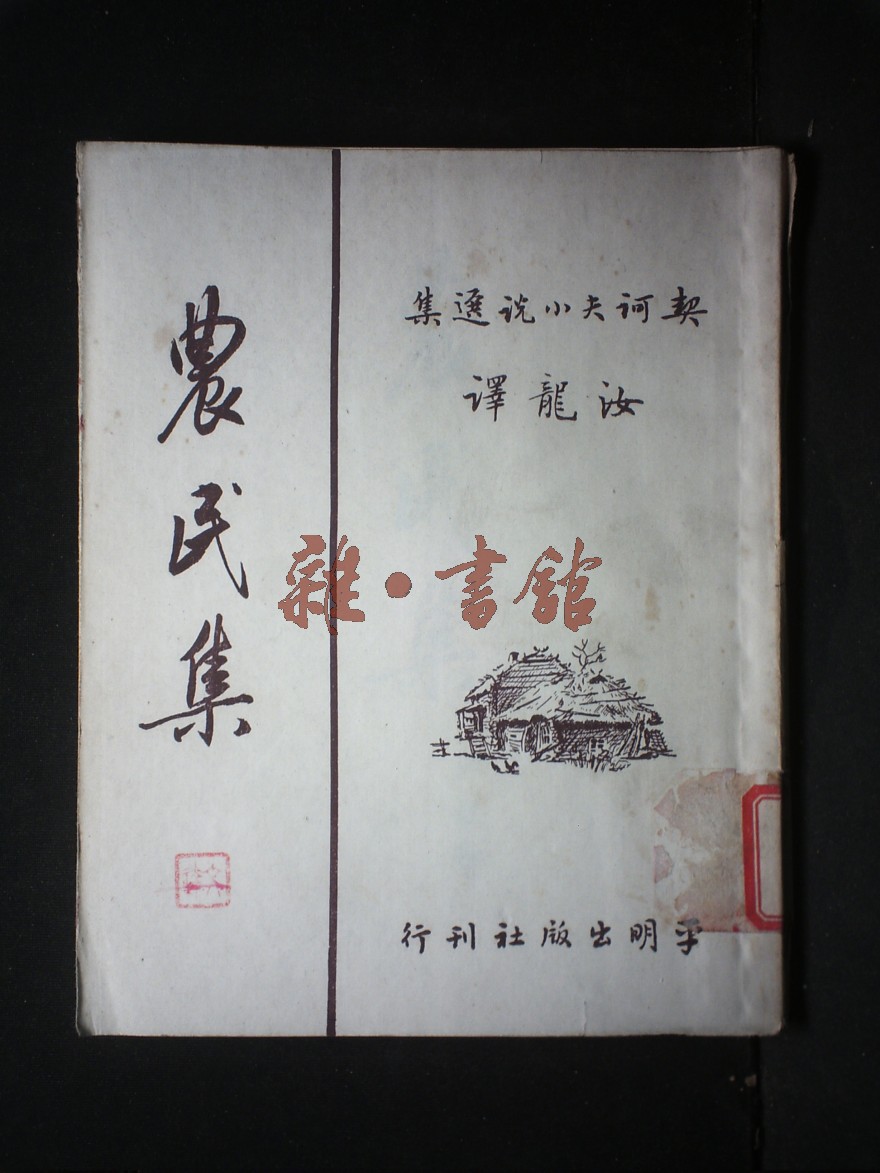 契訶夫小说選集
汝龍譯
農民集
雜·書舘
平明出版社刊行